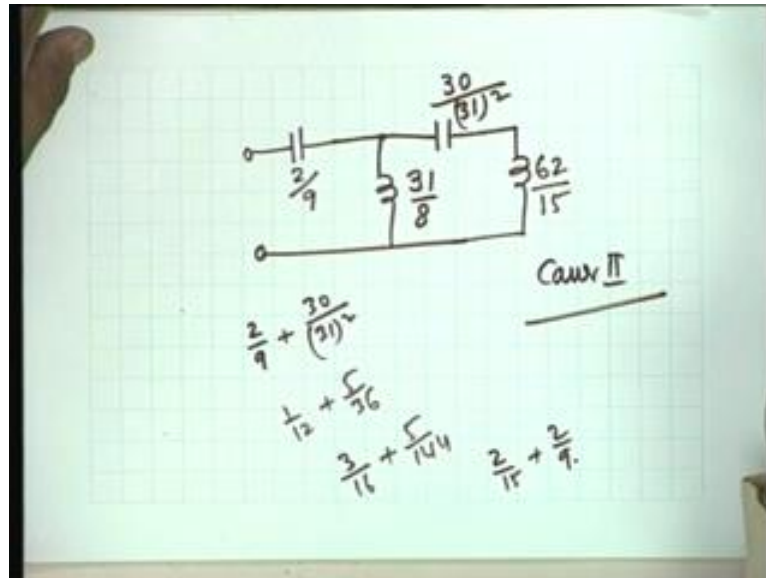 30/(31)²
2/9
31/8
62/15
Cauer II
2/9 + 30/(31)²
1/12 + 5/36
3/16 + 5/144
2/15 + 2/9.